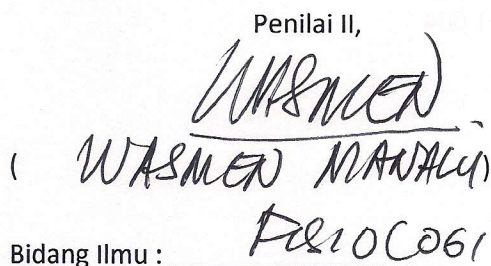 Penilai II,
WASMEN
( WASMEN MANALU)
Bidang Ilmu : FISIOLOGI